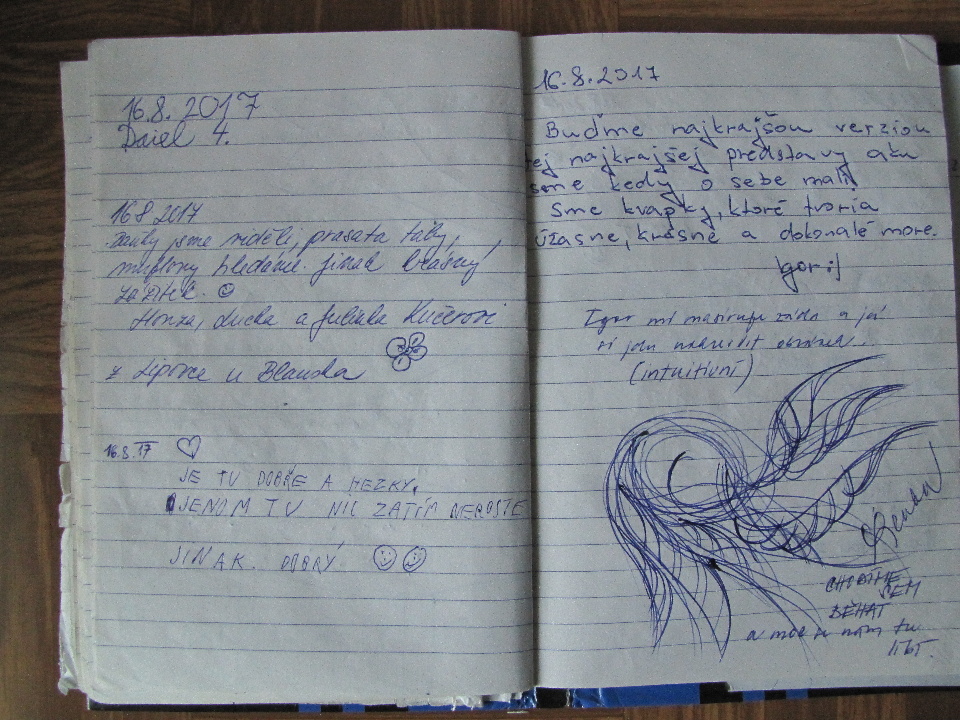 16.8.2017
Daniel 4.
16 8 2017
Daňky jsme viděli, prasata taky,
muflony hledáme. Jinak krásný
zážitek.
Honza, Lucka a Julinka Kučerovi
z Lipovce u Blanska
16.8.17
JE TU DOBŘE A HEZKY.
JENOM TU NIC ZATÍM NEROSTE
JINAK. DOBRÝ.
16.8.2017
Buďme najkrajšou verziou
tej najkrajšej predstavy akú
sme kedy o sebe mali!
Sme kvapky, ktoré tvoria
úžasne, krásne a dokonalé more.
Igor :)
Igor mi masíruje záda a já
si jdu nakreslit obrázek.
(intuitivní)
CHODÍME
SEM
BĚHAT
a moc se nám tu
líbí.